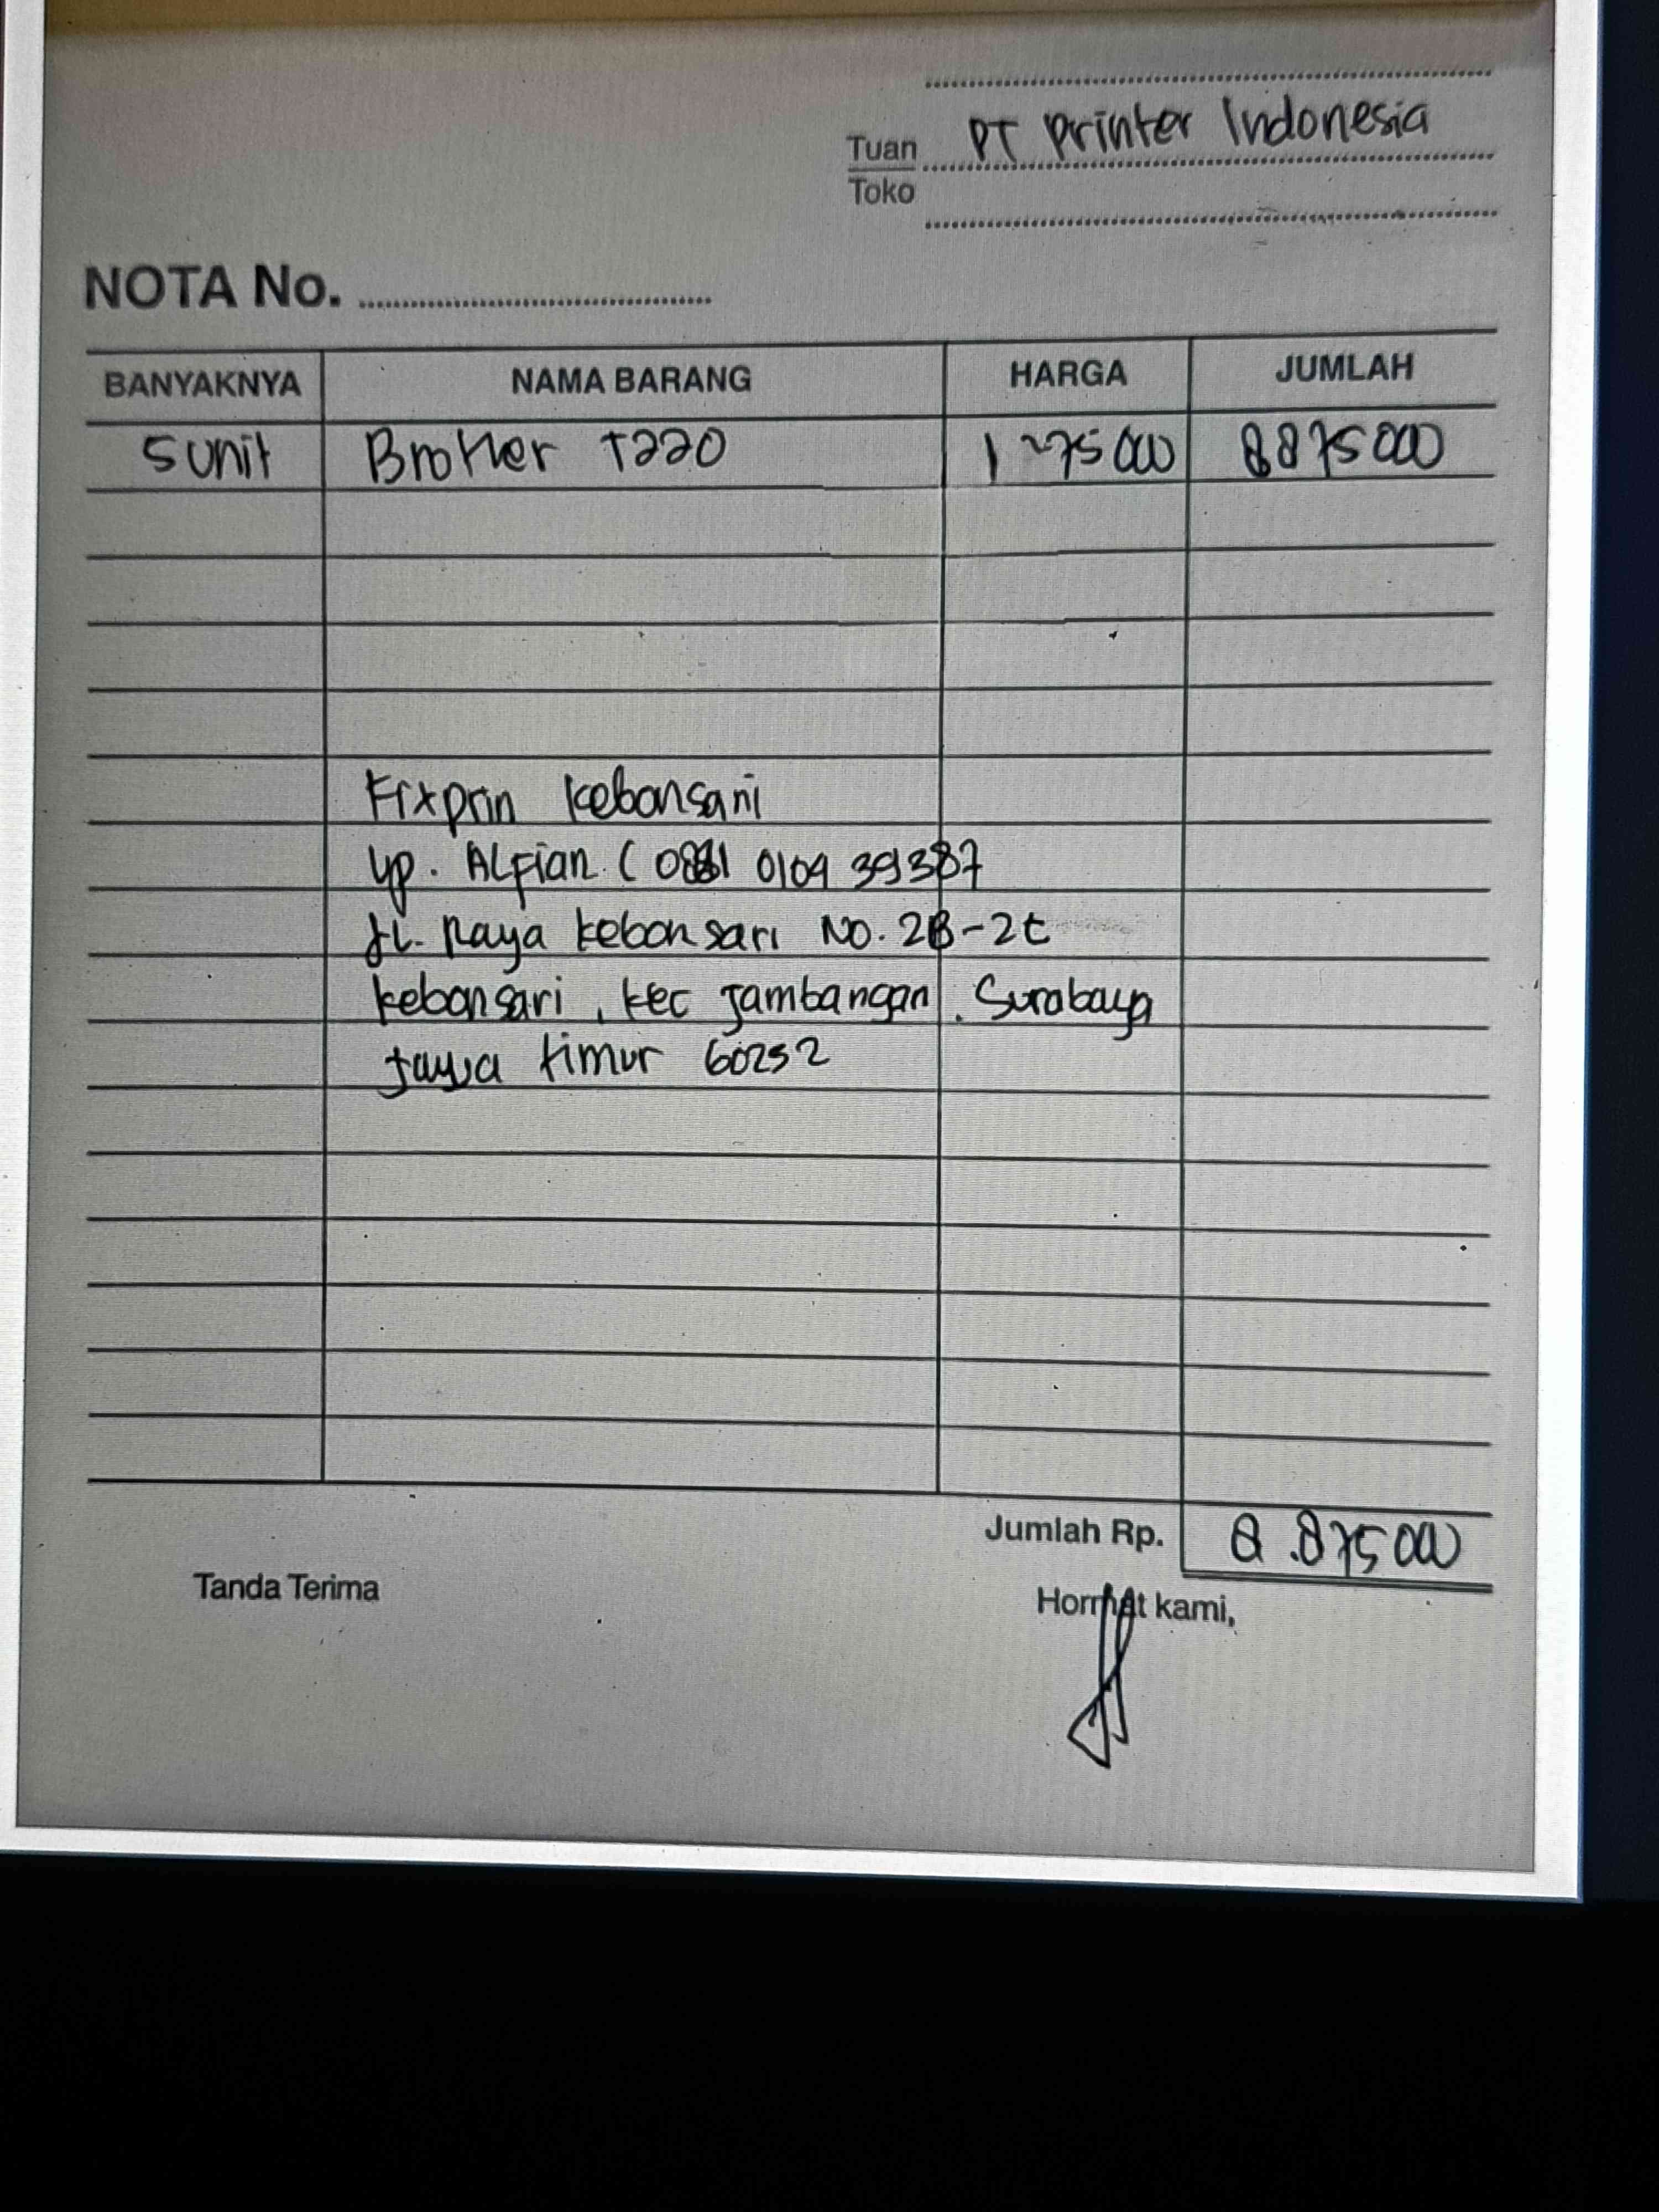 PT Printer Indonesia
Tuan
Toko
NOTA No.
BANYAKNYA NAMA BARANG HARGA JUMLAH
5 unit Brother T220 1 775 000 8875000
Fixprin Kebonsari
Up. ALFian ( 0881 0109 39387
JL. Raya Kebonsari No. 2B-2C
Kebonsari, Kec Jambangan. Surabaya
Jawa timur 60252
Jumlah Rp. 8.875000
Tanda Terima Hormat kami,